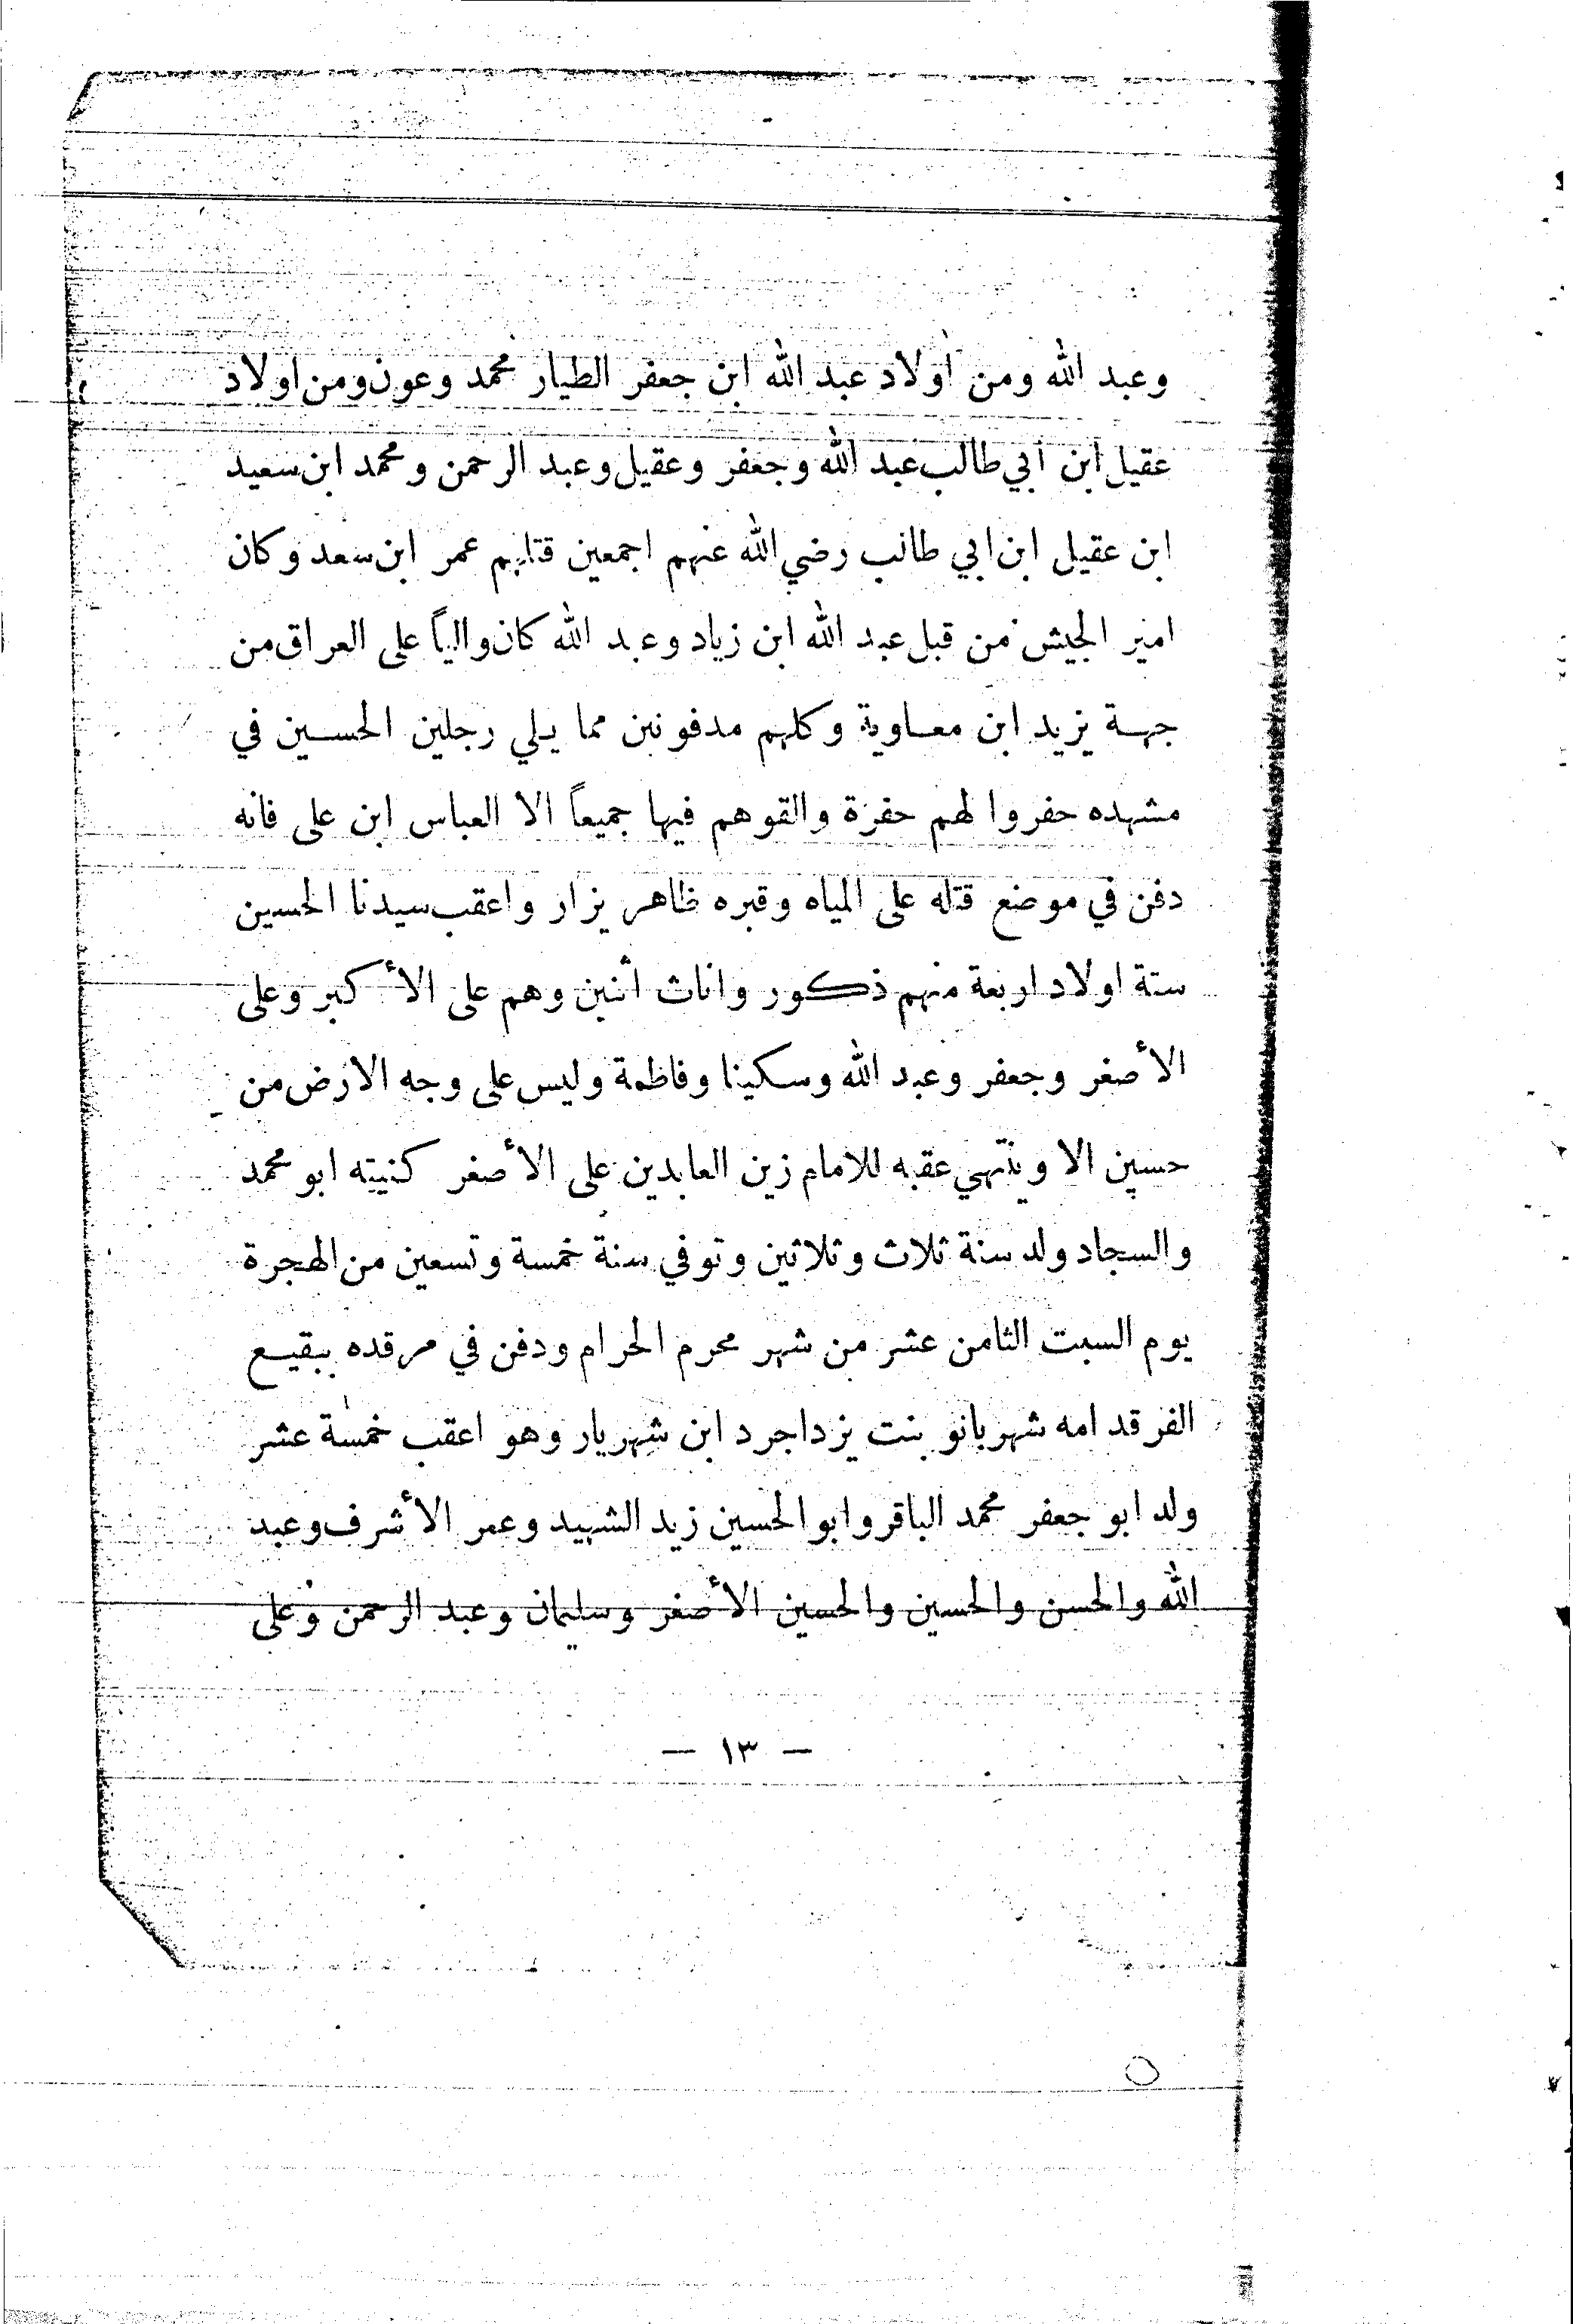 وعبد الله ومن اولاد عبد الله ابن جعفر الطيار محمد وعون ومن اولاد
عقيل ابن ابي طالب عبد الله وجعفر وعقيل وعبد الرحمن ومحمد ابن سعيد
ابن عقيل ابن ابي طالب رضي الله عنهم اجمعين قتلهم عمر ابن سعد وكان
امير الجيش من قبل عبد الله ابن زياد وعبد الله كان والياً على العراق من
جهة يزيد ابن معاوية وكلهم مدفونين مما يلي رجلين الحسين في
مشهده حفروا لهم حفرة والقوهم فيها جميعاً الا العباس ابن على فانه
دفن في موضع قتله على المياه وقبره ظاهر يزار واعقب سيدنا الحسين
ستة اولاد اربعة منهم ذكور واناث اثنين وهم على الأكبر وعلى
الأصغر وجعفر وعبد الله وسكينا وفاطمة وليس على وجه الارض من
حسين الا وينتهي عقبه للامام زين العابدين على الأصغر كنيته ابو محمد
والسجاد ولد سنة ثلاث وثلاثين وتوفي سنة خمسة وتسعين من الهجرة
يوم السبت الثامن عشر من شهر محرم الحرام ودفن في مرقده ببقيع
الفرقد امه شهربانو بنت يزداجرد ابن شهريار وهو اعقب خمسة عشر
ولد ابو جعفر محمد الباقر وابو الحسين زيد الشهيد وعمر الأشرف وعبد
الله والحسن والحسين والحسين الأصغر وسليمان وعبد الرحمن وعلى
— ١٣ —